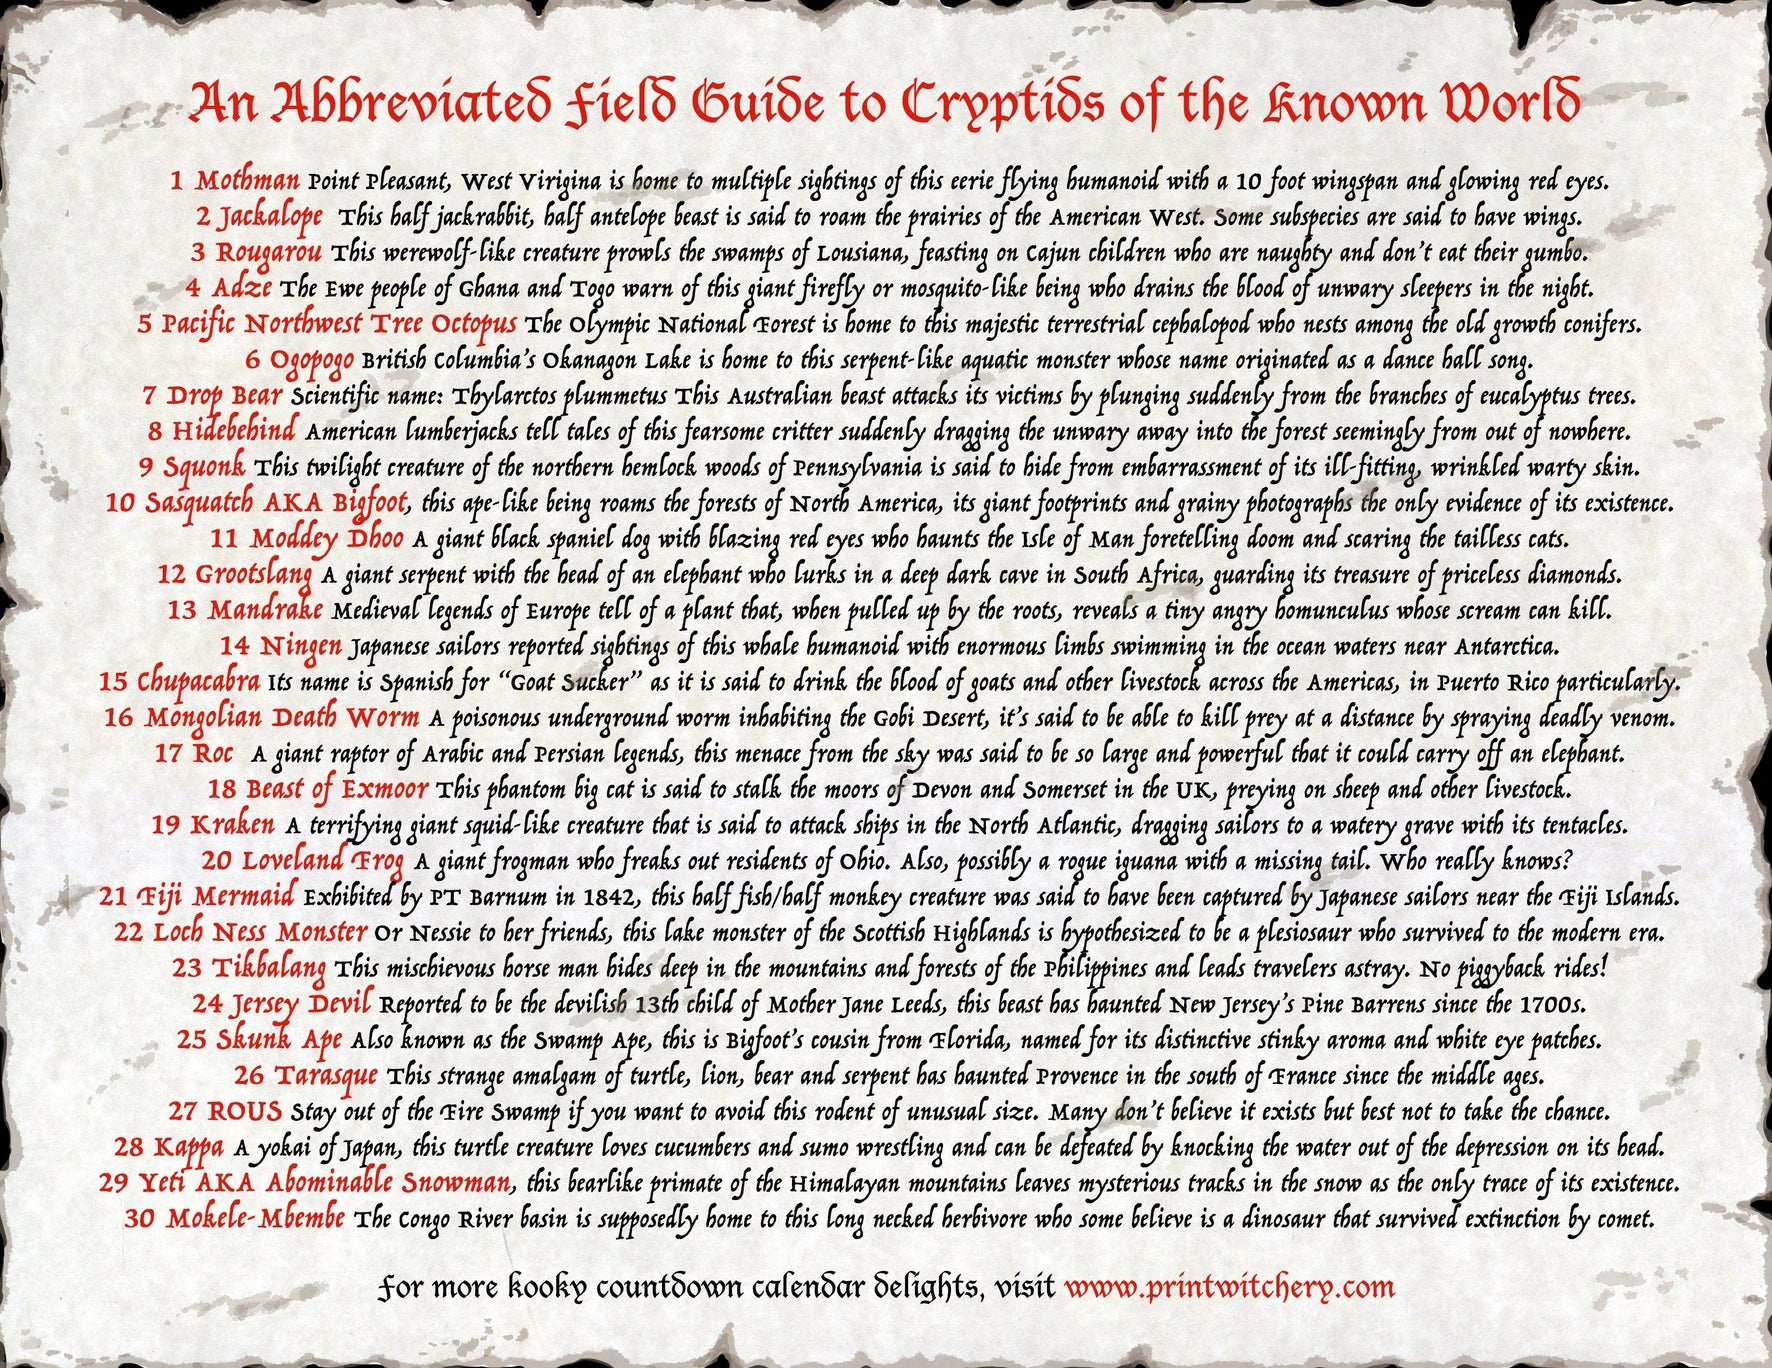 An Abbreviated Field Guide to Cryptids of the Known World
1 Mothman Point Pleasant, West Virigina is home to multiple sightings of this eerie flying humanoid with a 10 foot wingspan and glowing red eyes.
2 Jackalope This half jackrabbit, half antelope beast is said to roam the prairies of the American West. Some subspecies are said to have wings.
3 Rougarou This werewolf-like creature prowls the swamps of Lousiana, feasting on Cajun children who are naughty and don't eat their gumbo.
4 Adze The Ewe people of Ghana and Togo warn of this giant firefly or mosquito-like being who drains the blood of unwary sleepers in the night.
5 Pacific Northwest Tree Octopus The Olympic National Forest is home to this majestic terrestrial cephalopod who nests among the old growth conifers.
6 Ogopogo British Columbia's Okanagon Lake is home to this serpent-like aquatic monster whose name originated as a dance hall song.
7 Drop Bear Scientific name: Thylarctos plummetus This Australian beast attacks its victims by plunging suddenly from the branches of eucalyptus trees.
8 Hidebehind American lumberjacks tell tales of this fearsome critter suddenly dragging the unwary away into the forest seemingly from out of nowhere.
9 Squonk This twilight creature of the northern hemlock woods of Pennsylvania is said to hide from embarrassment of its ill-fitting, wrinkled warty skin.
10 Sasquatch AKA Bigfoot, this ape-like being roams the forests of North America, its giant footprints and grainy photographs the only evidence of its existence.
11 Moddey Dhoo A giant black spaniel dog with blazing red eyes who haunts the Isle of Man foretelling doom and scaring the tailless cats.
12 Grootslang A giant serpent with the head of an elephant who lurks in a deep dark cave in South Africa, guarding its treasure of priceless diamonds.
13 Mandrake Medieval legends of Europe tell of a plant that, when pulled up by the roots, reveals a tiny angry homunculus whose scream can kill.
14 Ningen Japanese sailors reported sightings of this whale humanoid with enormous limbs swimming in the ocean waters near Antarctica.
15 Chupacabra Its name is Spanish for “Goat Sucker” as it is said to drink the blood of goats and other livestock across the Americas, in Puerto Rico particularly.
16 Mongolian Death Worm A poisonous underground worm inhabiting the Gobi Desert, it's said to be able to kill prey at a distance by spraying deadly venom.
17 Roc A giant raptor of Arabic and Persian legends, this menace from the sky was said to be so large and powerful that it could carry off an elephant.
18 Beast of Exmoor This phantom big cat is said to stalk the moors of Devon and Somerset in the UK, preying on sheep and other livestock.
19 Kraken A terrifying giant squid-like creature that is said to attack ships in the North Atlantic, dragging sailors to a watery grave with its tentacles.
20 Loveland Frog A giant frogman who freaks out residents of Ohio. Also, possibly a rogue iguana with a missing tail. Who really knows?
21 Fiji Mermaid Exhibited by PT Barnum in 1842, this half fish/half monkey creature was said to have been captured by Japanese sailors near the Fiji Islands.
22 Loch Ness Monster Or Nessie to her friends, this lake monster of the Scottish Highlands is hypothesized to be a plesiosaur who survived to the modern era.
23 Tikbalang This mischievous horse man hides deep in the mountains and forests of the Philippines and leads travelers astray. No piggyback rides!
24 Jersey Devil Reported to be the devilish 13th child of Mother Jane Leeds, this beast has haunted New Jersey's Pine Barrens since the 1700s.
25 Skunk Ape Also known as the Swamp Ape, this is Bigfoot's cousin from Florida, named for its distinctive stinky aroma and white eye patches.
26 Tarasque This strange amalgam of turtle, lion, bear and serpent has haunted Provence in the south of France since the middle ages.
27 ROUS Stay out of the Fire Swamp if you want to avoid this rodent of unusual size. Many don't believe it exists but best not to take the chance.
28 Kappa A yokai of Japan, this turtle creature loves cucumbers and sumo wrestling and can be defeated by knocking the water out of the depression on its head.
29 Yeti AKA Abominable Snowman, this bearlike primate of the Himalayan mountains leaves mysterious tracks in the snow as the only trace of its existence.
30 Mokele-Mbembe The Congo River basin is supposedly home to this long necked herbivore who some believe is a dinosaur that survived extinction by comet.
For more kooky countdown calendar delights, visit www.printwitchery.com